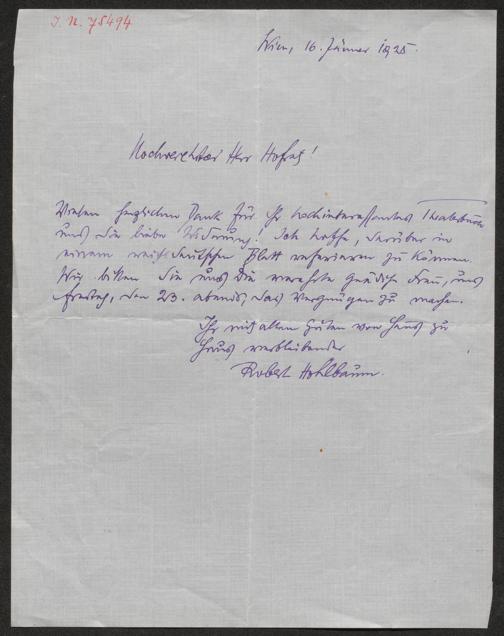 I. N. 75494
Wien, 16. Jänner 1925.
Hochverehrter Herr Hofrat!
Vielen herzlichen Dank für Ihr hochinteressantes Theaterbuch
und die liebe Widmung! Ich hoffe, darüber in
einem reichsdeutschen Blatt referieren zu können.
Wir bitten Sie und Die verehrte gnädige Frau, uns
Freitag, den 23. abends, das Vergnügen zu machen.
Ihr mit allem Guten von Haus zu
Haus verbleibender
Robert Hohlbaum.